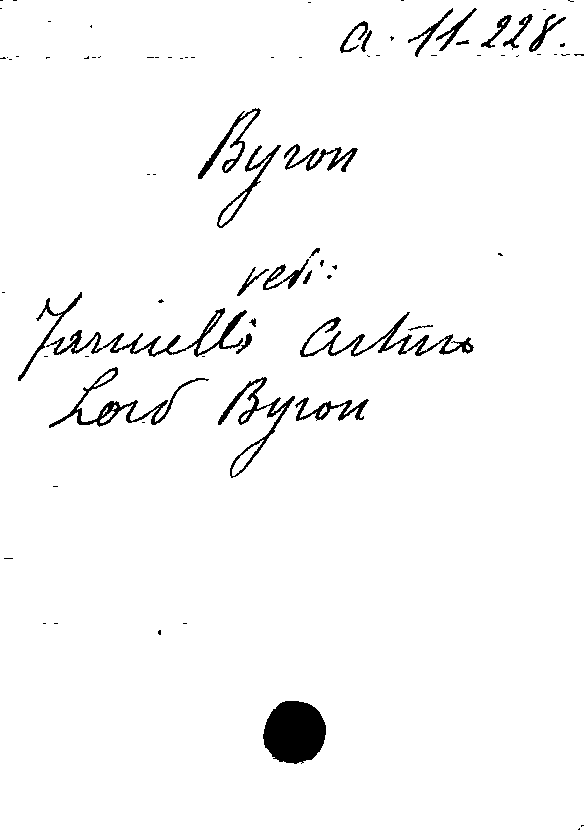 a. 11-228.
Byron
vedi:
Farinelli Arturo
Lord Byron